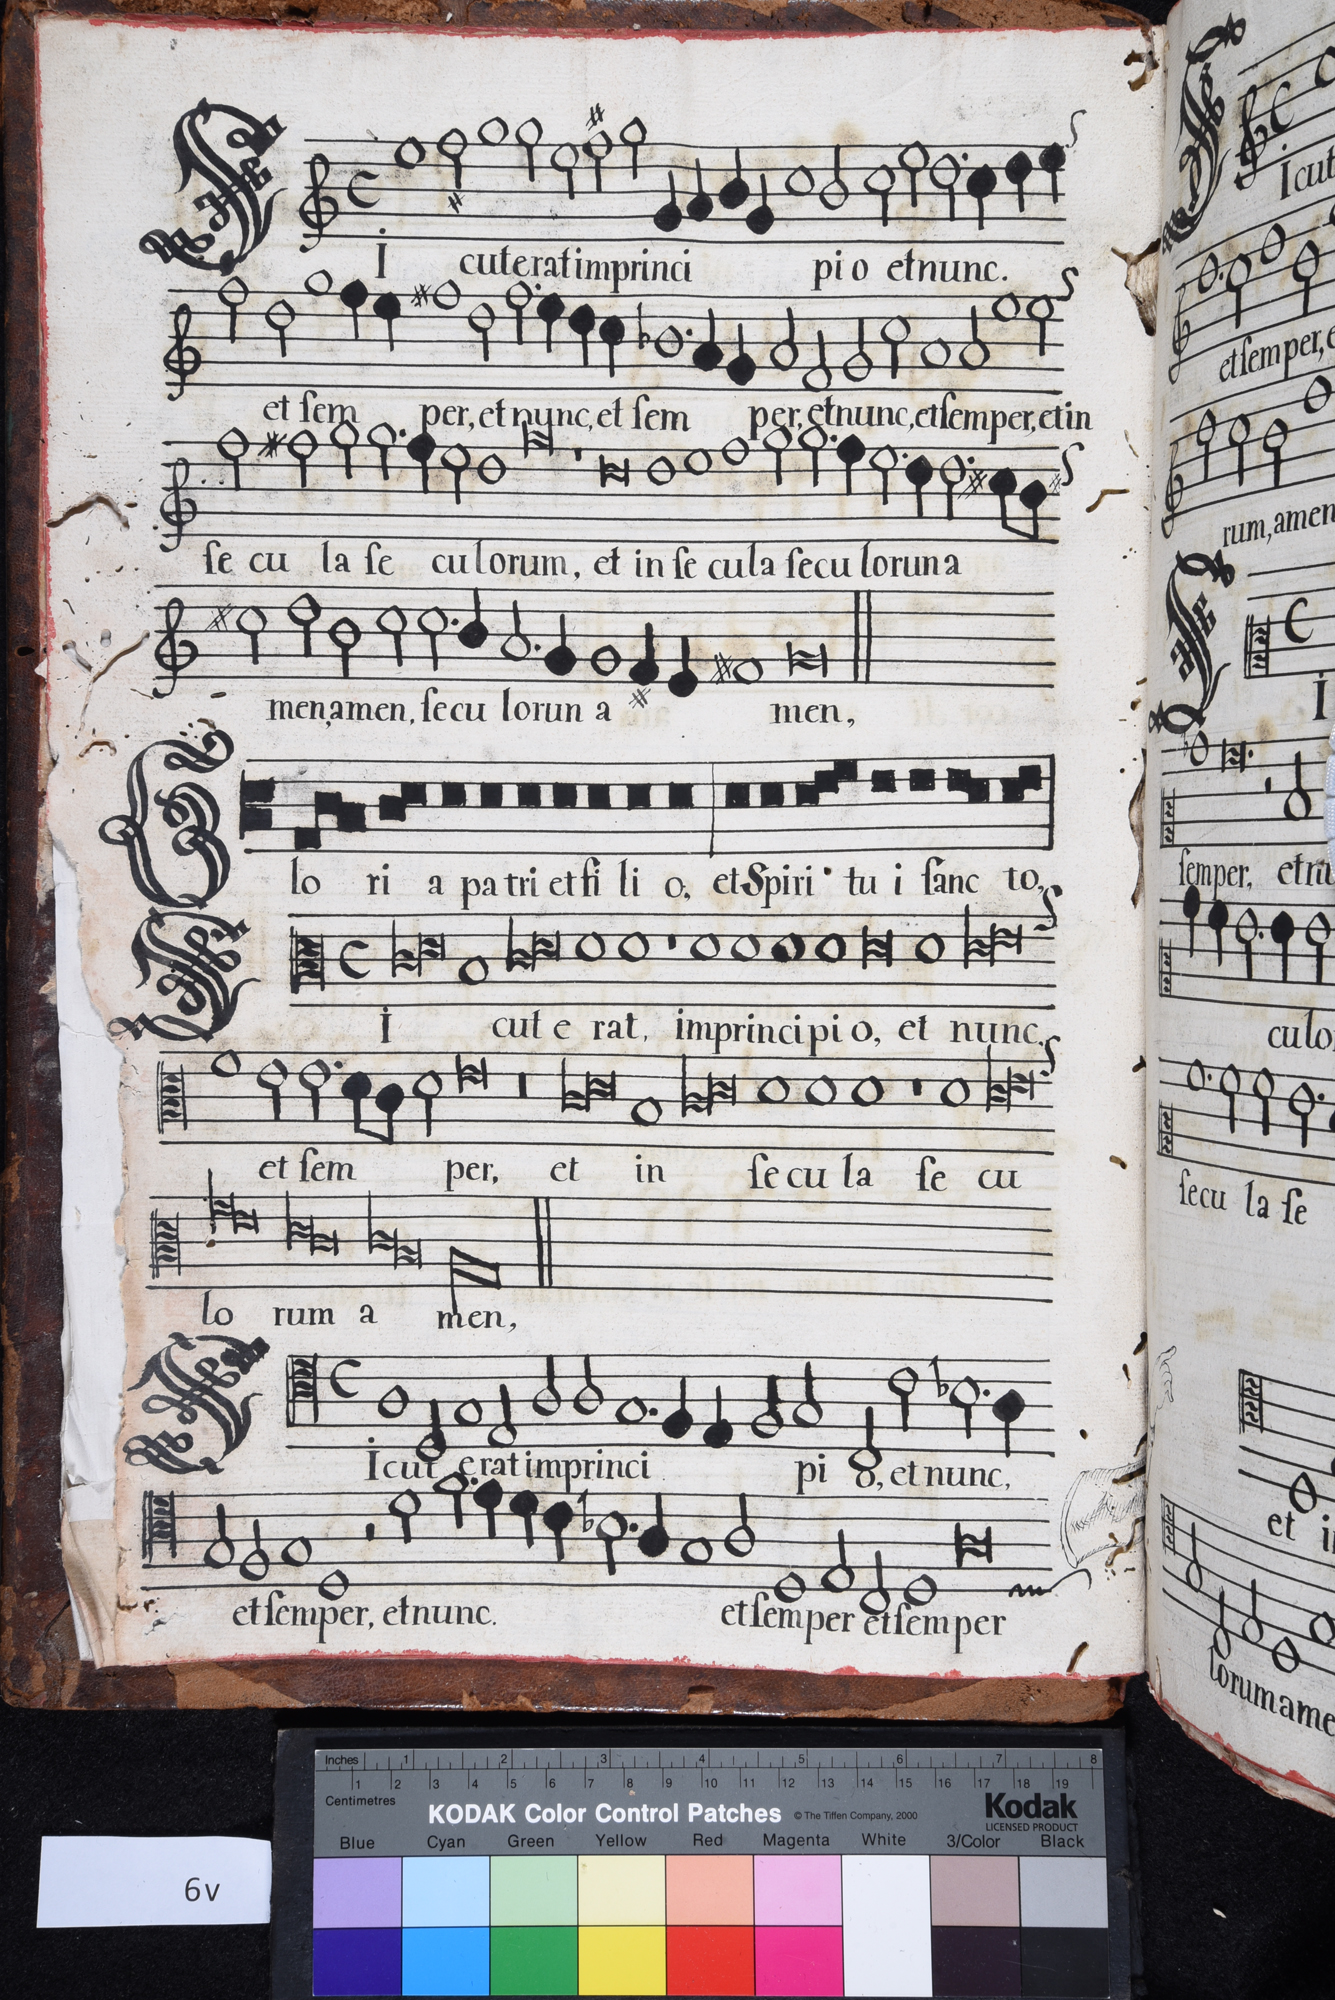 S I cut erat imprinci pio et nunc.
et sem per, et nunc, et sem per, et nunc, et semper, et in
se cu la se culorum, et in se cula secu lorun a
men, amen, secu lorun a men,
G lo ri a pa tri et fi li o, et Spiri tu i sanc to,
S I cut e rat, imprincipi o, et nunc,
et sem per, et in se cu la se cu
lo rum a men,
S I cut erat imprinci pi o, et nunc,
et semper, et nunc. et semper et semper
S Icut
et semper, e
rum, amen
S I
semper, et nu
culo
secu la se
et i
lorum ame
Inches 1 2 3 4 5 6 7 8
Centimetres 1 2 3 4 5 6 7 8 9 10 11 12 13 14 15 16 17 18 19
KODAK Color Control Patches © The Tiffen Company, 2000 Kodak
LICENSED PRODUCT
Blue Cyan Green Yellow Red Magenta White 3/Color Black
6v